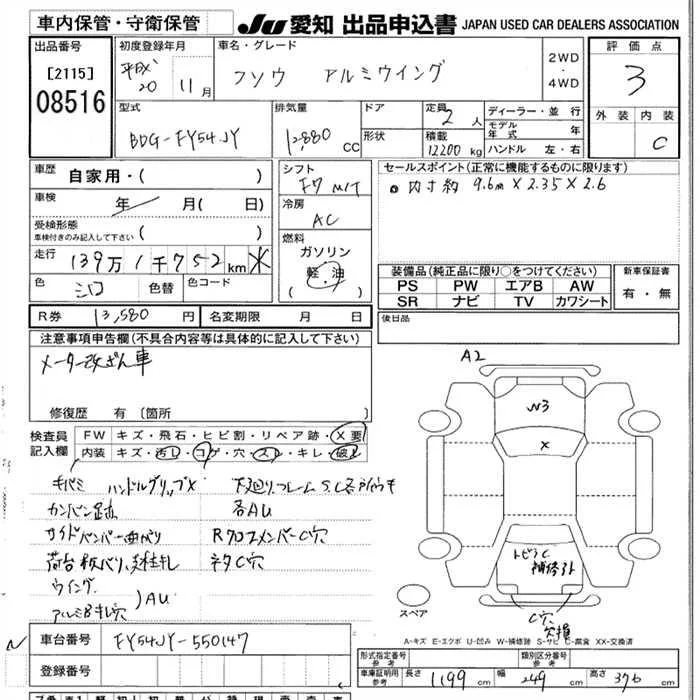 車内保管・守衛保管
JU 愛知 出品申込書 JAPAN USED CAR DEALERS ASSOCIATION
出品番号
[2115]
08516
初度登録年月
平成
20 11月
車名・グレード
フソウ アルミウイング
2WD
・
4WD
評価点
3
外装 内装
C
型式
BDG-FY54JY
排気量
12880 cc
ドア
形状
定員 2 人
積載 12200 kg
ディーラー・並行
モデル年式 年
ハンドル 左・右
車歴 自家用・( )
車検 年 月( 日)
受検形態
車検付きのみ記入して下さい ( )
走行 139万1千752km ✕
色 シロ 色替 色コード
シフト
F7 M/T
冷房
AC
燃料
ガソリン
軽・油
( )
セールスポイント(正常に機能するものに限ります)
◎ 内寸約 9.6m×2.35×2.6
装備品(純正品に限り○をつけてください)
PS PW エアB AW
SR ナビ TV カワシート
新車保証書
有・無
R券 13,580円 名変期限 月 日
後日品
注意事項申告欄(不具合内容等は具体的に記入して下さい)
メーター改ざん車
修復歴 有〔箇所
検査員記入欄
FW キズ・飛石・ヒビ割・リペア跡・X要
内装 キズ・汚レ・コゲ・穴・スレ・キレ・破レ
キバミ ハンドルグリップX
カンバン跡
サイドバンパー曲がり
ウイング
アルミBキレ穴 ) AU
下廻りフレームS.C
各AU
RクロスメンバーC穴
ネタC穴
A2
N3
X
トビラC
補修跡
C穴
欠損
スペア
A-キズ E-エクボ U-凹み W-補修跡 S-サビ C-腐食 XX-交換済
車台番号 FY54JY-550147
登録番号
形式指定番号 参考
類別区分番号 参考
車庫証明用 参考 長さ 1199 cm 幅 249 cm 高さ 376 cm